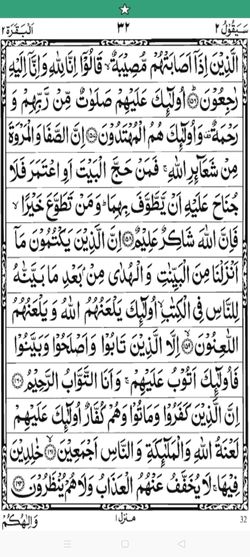 سَيَقُوْلُ ٢
٣٢
اَلْبَقَرَة ٢
الَّذِيْنَ اِذَاۤ اَصَابَتْهُمْ مُّصِيْبَةٌ ۙ قَالُوْۤا اِنَّا لِلّٰهِ وَاِنَّاۤ اِلَيْهِ
رٰجِعُوْنَ ۟ؕ ۱۵۶ اُولٰٓئِكَ عَلَيْهِمْ صَلَوٰتٌ مِّنْ رَّبِّهِمْ وَ
رَحْمَةٌ ۫ وَاُولٰٓئِكَ هُمُ الْمُهْتَدُوْنَ ۱۵۷ اِنَّ الصَّفَا وَالْمَرْوَةَ
مِنْ شَعَآئِرِ اللّٰهِ ۚ فَمَنْ حَجَّ الْبَيْتَ اَوِ اعْتَمَرَ فَلَا
جُنَاحَ عَلَيْهِ اَنْ يَّطَّوَّفَ بِهِمَا ؕ وَمَنْ تَطَوَّعَ خَيْرًا ۙ
فَاِنَّ اللّٰهَ شَاكِرٌ عَلِيْمٌ ۱۵۸ اِنَّ الَّذِيْنَ يَكْتُمُوْنَ مَاۤ
اَنْزَلْنَا مِنَ الْبَيِّنٰتِ وَ الْهُدٰى مِنْۢ بَعْدِ مَا بَيَّنّٰهُ
لِلنَّاسِ فِى الْكِتٰبِ ۙ اُولٰٓئِكَ يَلْعَنُهُمُ اللّٰهُ وَ يَلْعَنُهُمُ
اللّٰعِنُوْنَ ۙ ۱۵۹ اِلَّا الَّذِيْنَ تَابُوْا وَ اَصْلَحُوْا وَبَيَّنُوْا
فَاُولٰٓئِكَ اَتُوْبُ عَلَيْهِمْ ۚ وَ اَنَا التَّوَّابُ الرَّحِيْمُ ۱۶۰
اِنَّ الَّذِيْنَ كَفَرُوْا وَمَاتُوْا وَهُمْ كُفَّارٌ اُولٰٓئِكَ عَلَيْهِمْ
لَعْنَةُ اللّٰهِ وَ الْمَلٰٓئِكَةِ وَ النَّاسِ اَجْمَعِيْنَ ۙ ۱۶۱ خٰلِدِيْنَ
فِيْهَا ۚ لَا يُخَفَّفُ عَنْهُمُ الْعَذَابُ وَلَا هُمْ يُنْظَرُوْنَ ۱۶۲
وَاِلٰهُكُمْ
منزل ۱
32